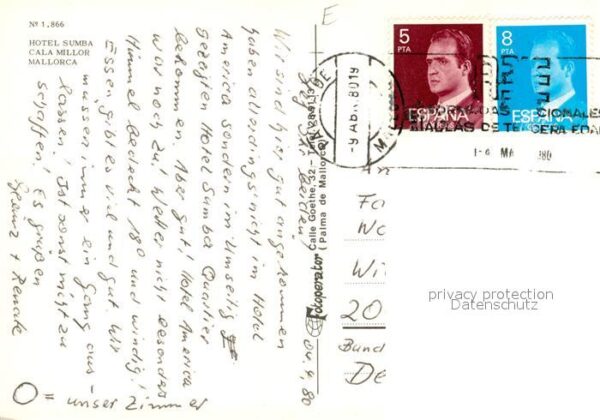 Nº 1.866
HOTEL SUMBA
CALA MILLOR
MALLORCA
E
Wir sind gut angekommen
haben allerdings nicht im Hotel
America sondern im Umseitig
gezeigten Hotel Sumba Quatier
bekommen. Aber gut! Hotel America
war noch zu! Wetter nicht besonders
Himmel bedeckt 18º und windig!
Essen gibt es viel und gut. Wir
müssen immer ein Gang aus-
lassen. Ist sonst nicht zu
schaffen! Es grüßen
Heinz + Renate
O = unser Zimmer
Fotoperator
Calle Goethe, 32 -
(Palma de Mallorca)
04.4.80
5
PTA
ESPAÑA
8
PTA
ESPAÑA
9 ABR 80
19
An
Fa
Wi
20
Bund
De
privacy protection
Datenschutz